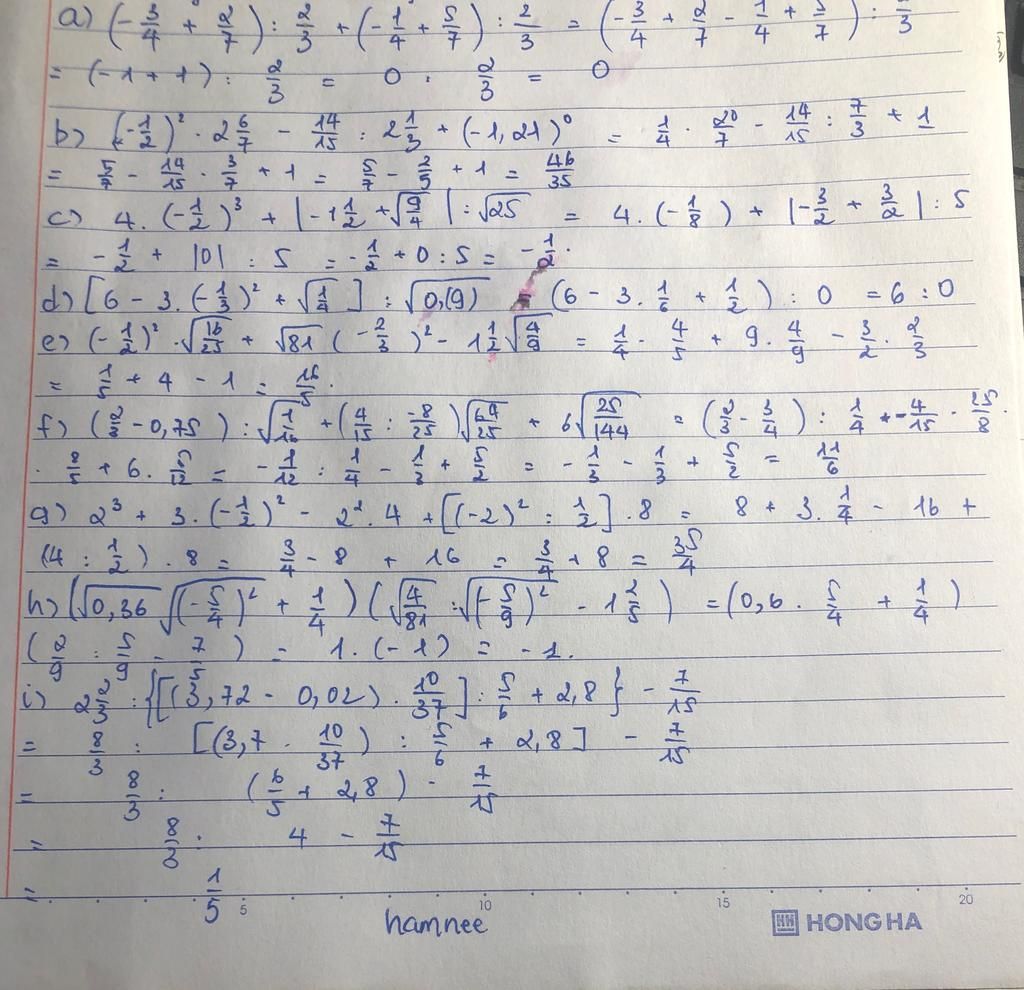 a) (-3/4 + 2/7) : 2/3 + (-1/4 + 5/7) : 2/3 = (-3/4 + 2/7 - 1/4 + 5/7) : 2/3
= (-1 + 1) : 2/3 = 0 : 2/3 = 0
b) (-1/2)² . 2 6/7 - 14/15 : 2 1/3 + (-1,21)⁰ = 1/4 . 20/7 - 14/15 : 7/3 + 1
= 5/7 - 14/15 . 3/7 + 1 = 5/7 - 2/5 + 1 = 46/35
c) 4. (-1/2)³ + |-1 1/2 + √(9/4)| : √25 = 4. (-1/8) + |-3/2 + 3/2| : 5
= -1/2 + |0| : 5 = -1/2 + 0 : 5 = -1/2.
d) [6 - 3. (-1/3)² + √(1/4)] : √0,(9) = (6 - 3. 1/6 + 1/2) : 0 = 6 : 0
e) (-1/2)² . √(16/25) + √81 (-2/3)² - 1 1/2 √(4/9) = 1/4 . 4/5 + 9. 4/9 - 3/2 . 2/3
= 1/5 + 4 - 1 = 16/5.
f) (2/3 - 0,75) : √(1/16) + (4/15 : -8/25) √(64/25) + 6√(25/144) = (2/3 - 3/4) : 1/4 + -4/15 . 25/8
. 8/5 + 6. 5/12 = -1/12 : 1/4 - 1/3 + 5/2 = -1/3 - 1/3 + 5/2 = 11/6
g) 2³ + 3. (-1/2)² - 2². 4 + [(-2)² : 1/2] . 8 = 8 + 3. 1/4 - 16 +
(4 : 1/2) . 8 = 3/4 - 8 + 16 = 3/4 + 8 = 35/4
h) (√0,36 √(-5/4)² + 1/4) (√(4/81) : √(-5/9)² - 1 2/5) = (0,6 . 5/4 + 1/4)
(2/9 : 5/9 - 7/5) = 1. (-1) = -1.
i) 2 2/3 : {[(3,72 - 0,02) . 10/37] : 5/6 + 2,8} - 7/15
= 8/3 : [(3,7 . 10/37) : 5/6 + 2,8] - 7/15
= 8/3 : (6/5 + 2,8) - 7/15
= 8/3 : 4 - 7/15
= 1/5
5 10 15 20
hamnee
HH HONG HA